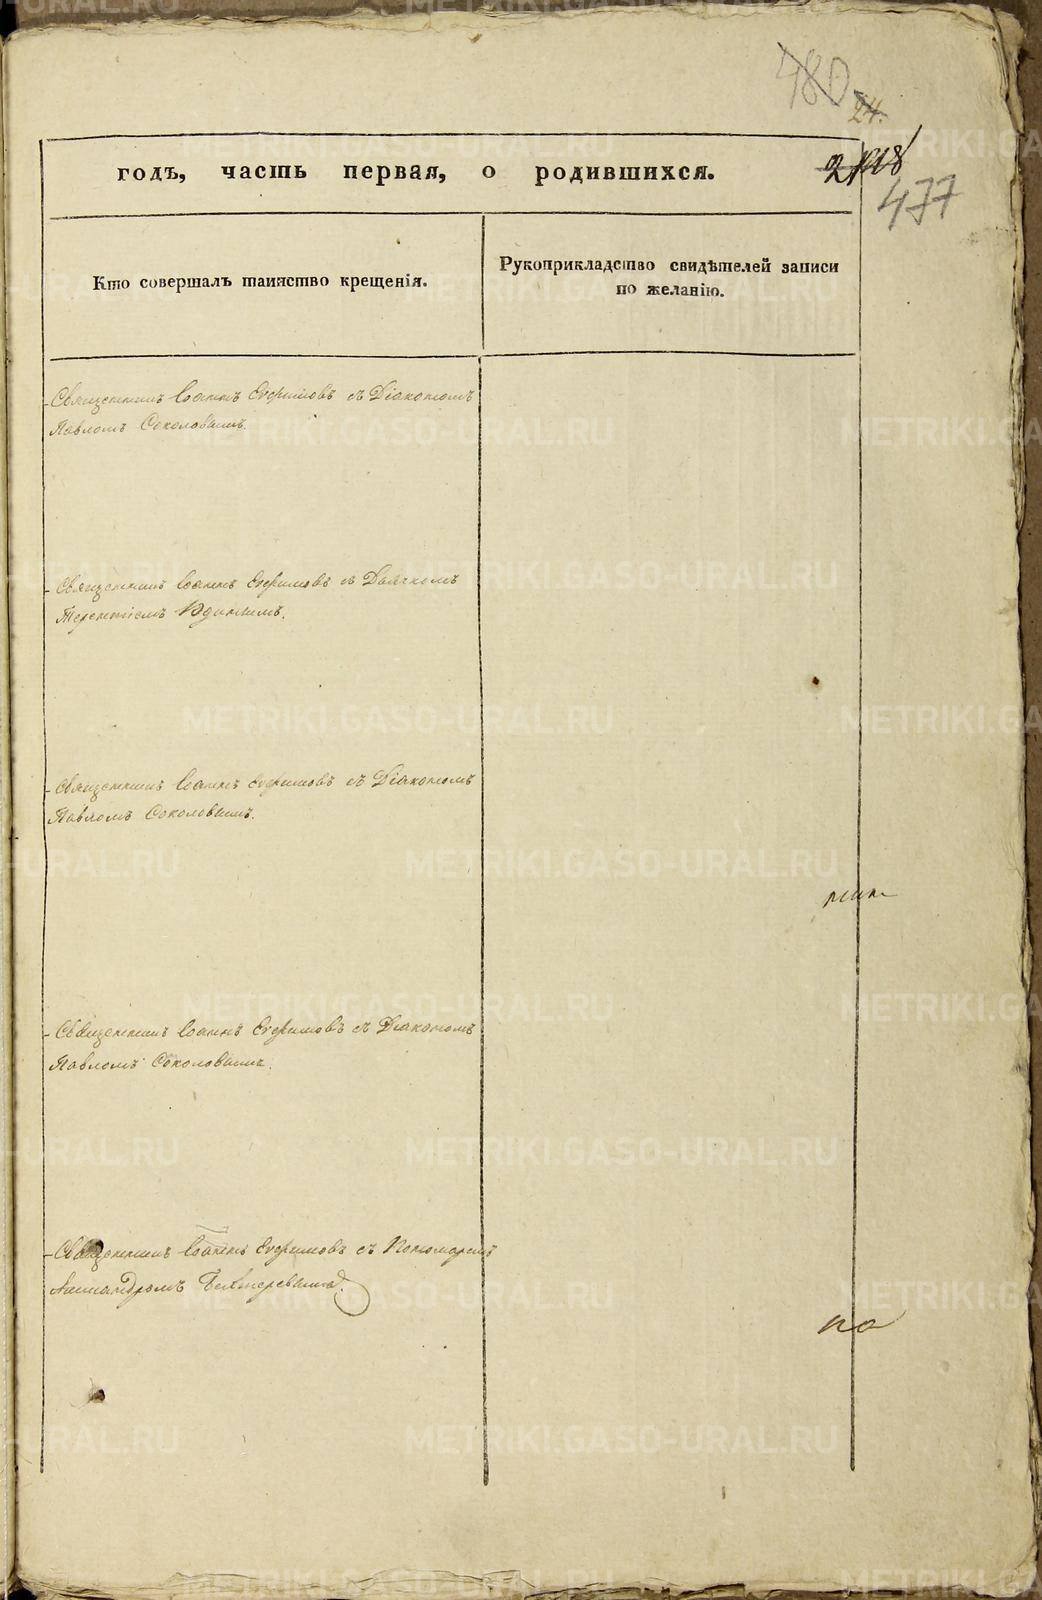 480
24.
годъ, часть первая, о родившихся.
477
Кто совершалъ таинство крещенія.
Рукоприкладство свидѣтелей записи
по желанію.
Священникъ Іоаннъ Ефимовъ съ Діакономъ
Павломъ Соколовымъ.
Священникъ Іоаннъ Ефимовъ съ Дьячкомъ
Терентіемъ
Священникъ Іоаннъ Ефимовъ съ Діакономъ
Павломъ Соколовымъ.
Священникъ Іоаннъ Ефимовъ съ Діакономъ
Павломъ Соколовымъ.
Священникъ Іоаннъ Ефимовъ съ Пономаремъ
по
METRIKI.GASO-URAL.RU